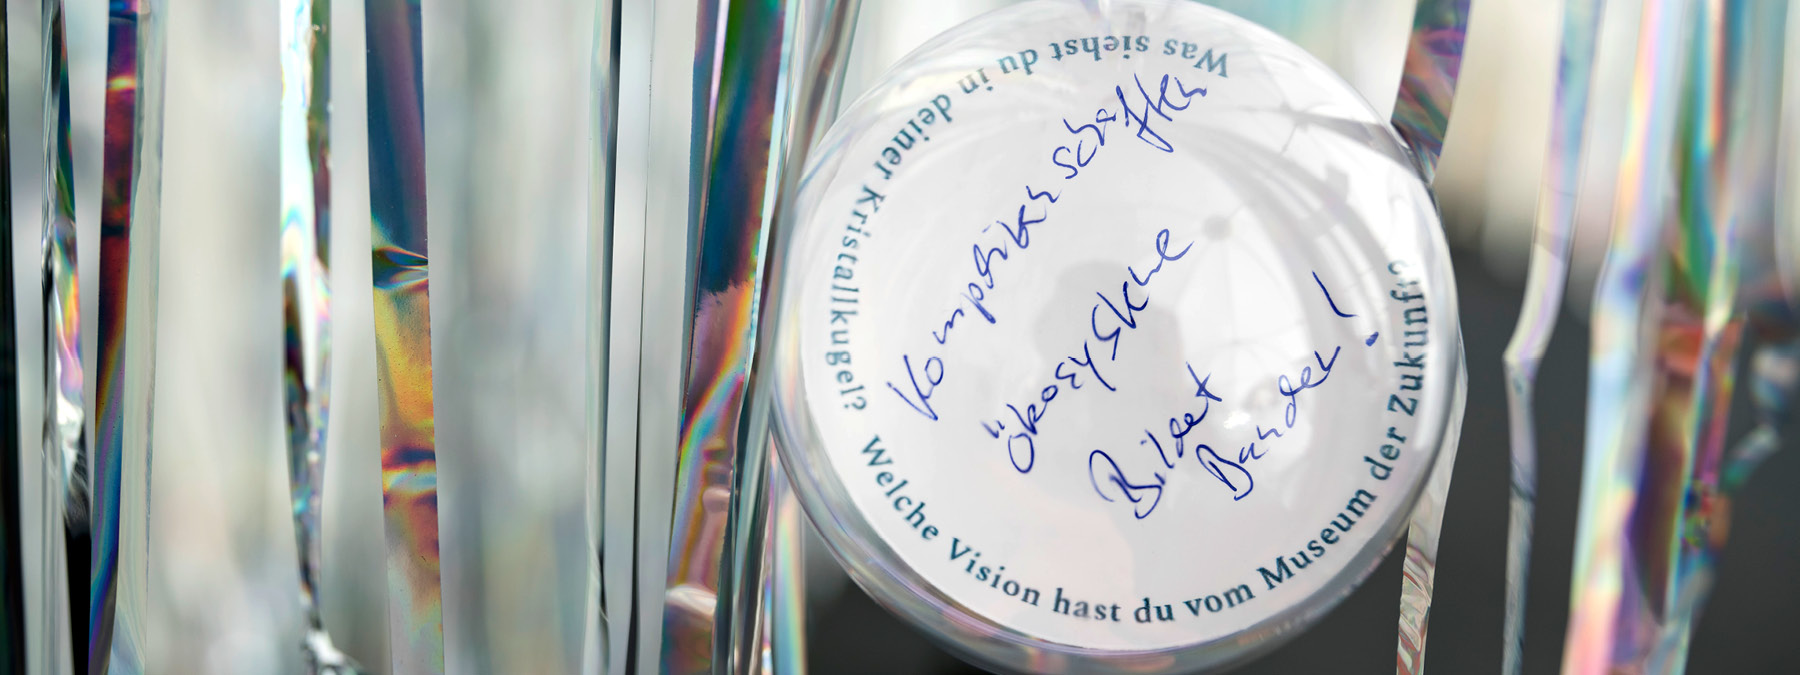 Was siehst du in deiner Kristallkugel?
Welche Vision hast du vom Museum der Zukunft?
Komplizenschaften
Ökosysteme
Bildet
Banden!